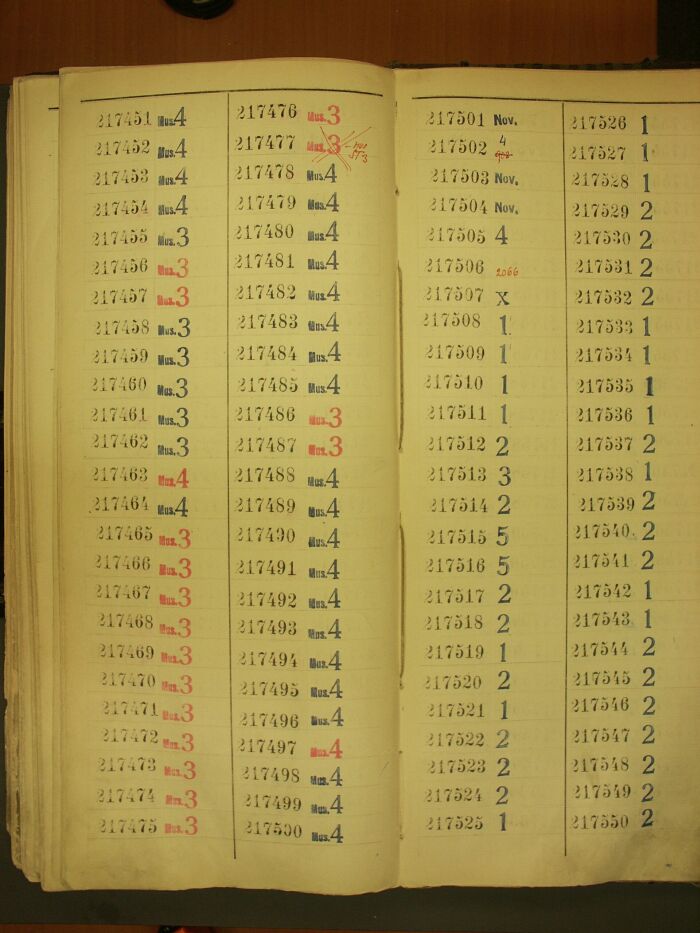 217451 Mus.4
217452 Mus.4
217453 Mus.4
217454 Mus.4
217455 Mus.3
217456 Mus.3
217457 Mus.3
217458 Mus.3
217459 Mus.3
217460 Mus.3
217461 Mus.3
217462 Mus.3
217463 Mus.4
217464 Mus.4
217465 Mus.3
217466 Mus.3
217467 Mus.3
217468 Mus.3
217469 Mus.3
217470 Mus.3
217471 Mus.3
217472 Mus.3
217473 Mus.3
217474 Mus.3
217475 Mus.3
217476 Mus.3
217477 Mus.3
217478 Mus.4
217479 Mus.4
217480 Mus.4
217481 Mus.4
217482 Mus.4
217483 Mus.4
217484 Mus.4
217485 Mus.4
217486 Mus.3
217487 Mus.3
217488 Mus.4
217489 Mus.4
217490 Mus.4
217491 Mus.4
217492 Mus.4
217493 Mus.4
217494 Mus.4
217495 Mus.4
217496 Mus.4
217497 Mus.4
217498 Mus.4
217499 Mus.4
217500 Mus.4
217501 Nov.
217502 4
217503 Nov.
217504 Nov.
217505 4
217506 2066
217507 X
217508 1
217509 1
217510 1
217511 1
217512 2
217513 3
217514 2
217515 5
217516 5
217517 2
217518 2
217519 1
217520 2
217521 1
217522 2
217523 2
217524 2
217525 1
217526 1
217527 1
217528 1
217529 2
217530 2
217531 2
217532 2
217533 1
217534 1
217535 1
217536 1
217537 2
217538 1
217539 2
217540. 2
217541 2
217542 1
217543 1
217544 2
217545 2
217546 2
217547 2
217548 2
217549 2
217550 2